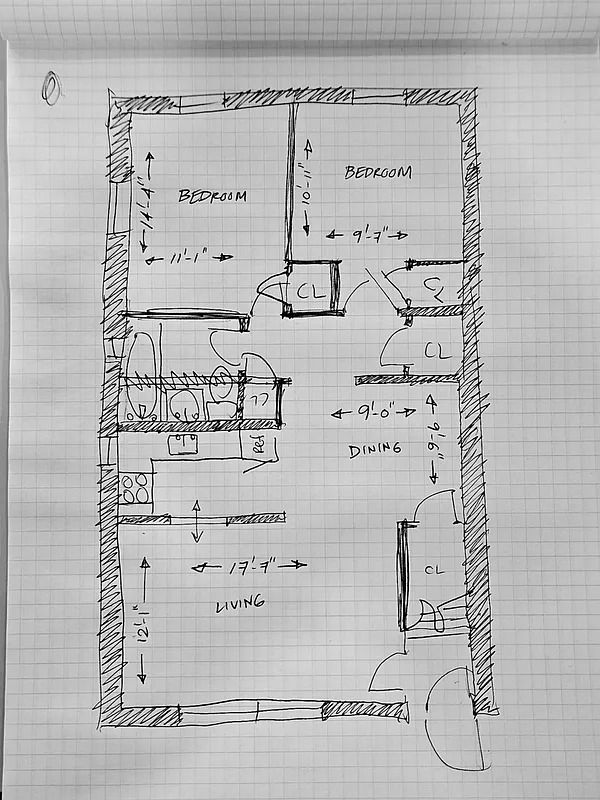 BEDROOM
14'-4"
11'-1"
BEDROOM
10'-11"
9'-7"
CL
CL
CL
CL
Ref
9'-0"
9'-6"
DINING
CL
17'-7"
LIVING
12'-1"